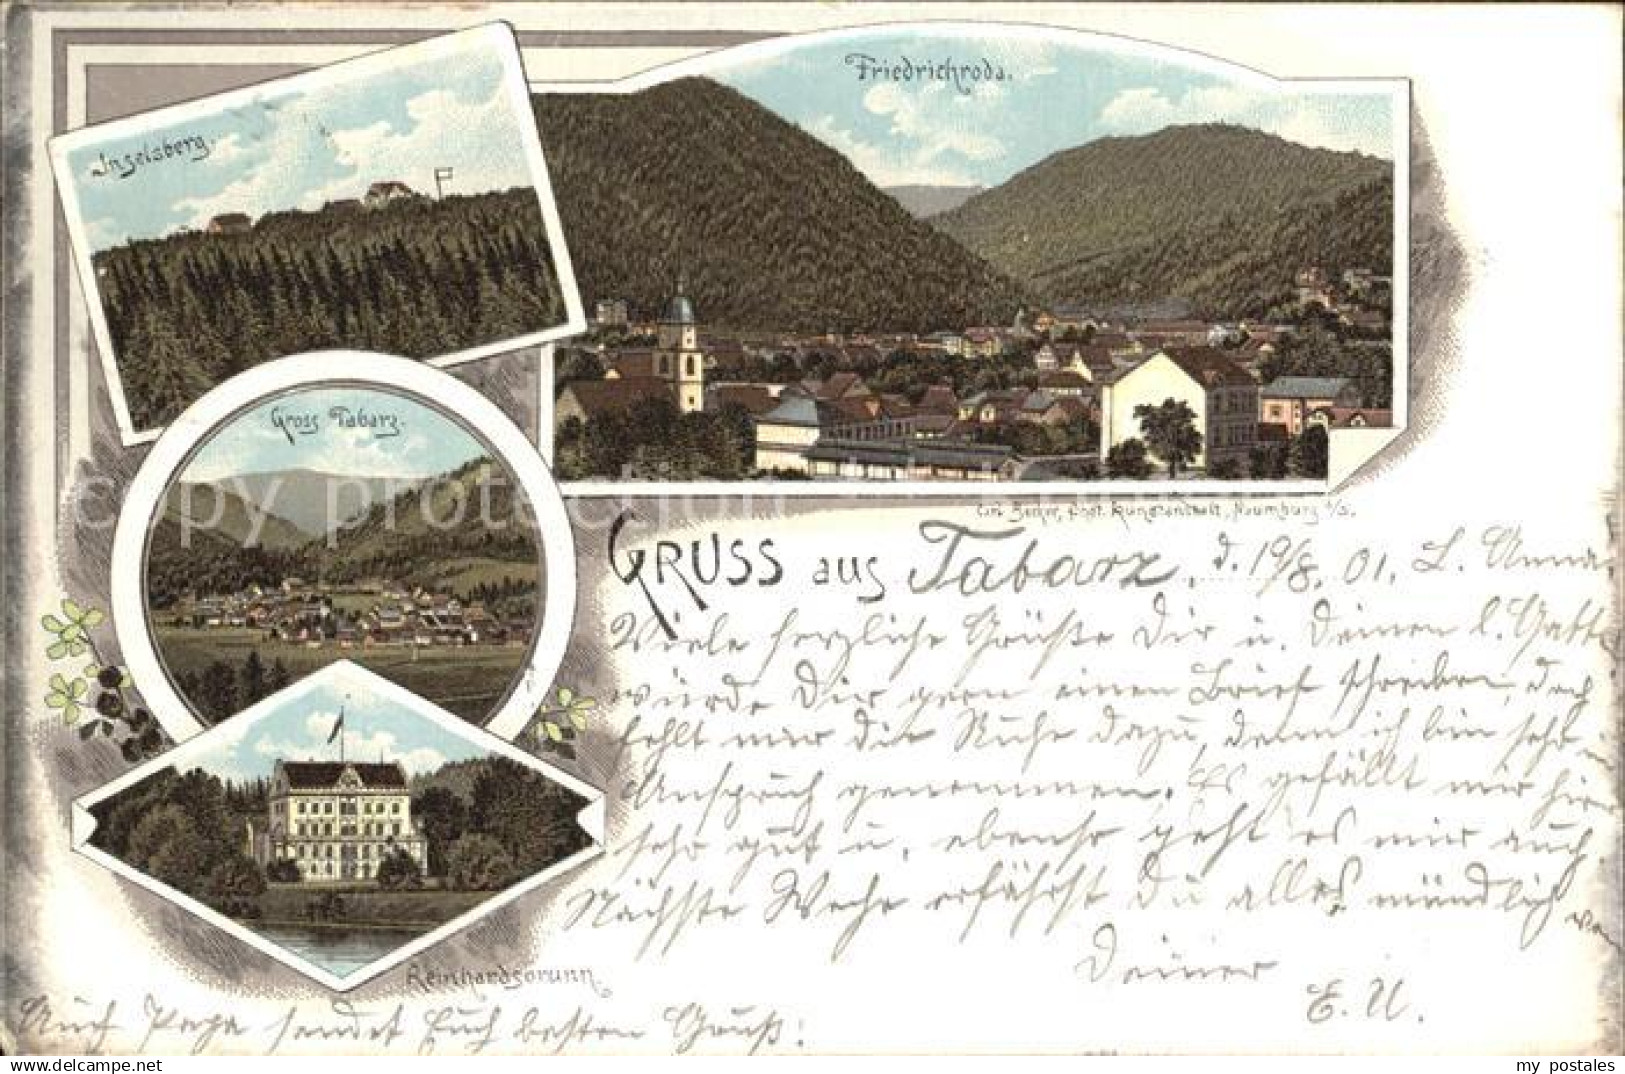 Friedrichroda.
Inselsberg.
Gross Tabarz.
Carl Becker, Phot. Kunstanstalt, Naumburg a/S.
GRUSS aus Tabarz, d. 19/8. 01. L. Anna.
Viele herzliche Grüße Dir u. Deinem l. Gatte
würde Dir gern einen Brief schreiben, doch
fehlt mir die Ruhe dazu, denn ich bin sehr in
Anspruch genommen. Es gefällt mir hier
sehr gut u. ebenso geht es mir auch.
Nächste Woche erfährst Du alles mündlich von
Deiner
E. U.
Reinhardsbrunn.
Auch Papa sendet Euch besten Gruß!
copy protection
my postales